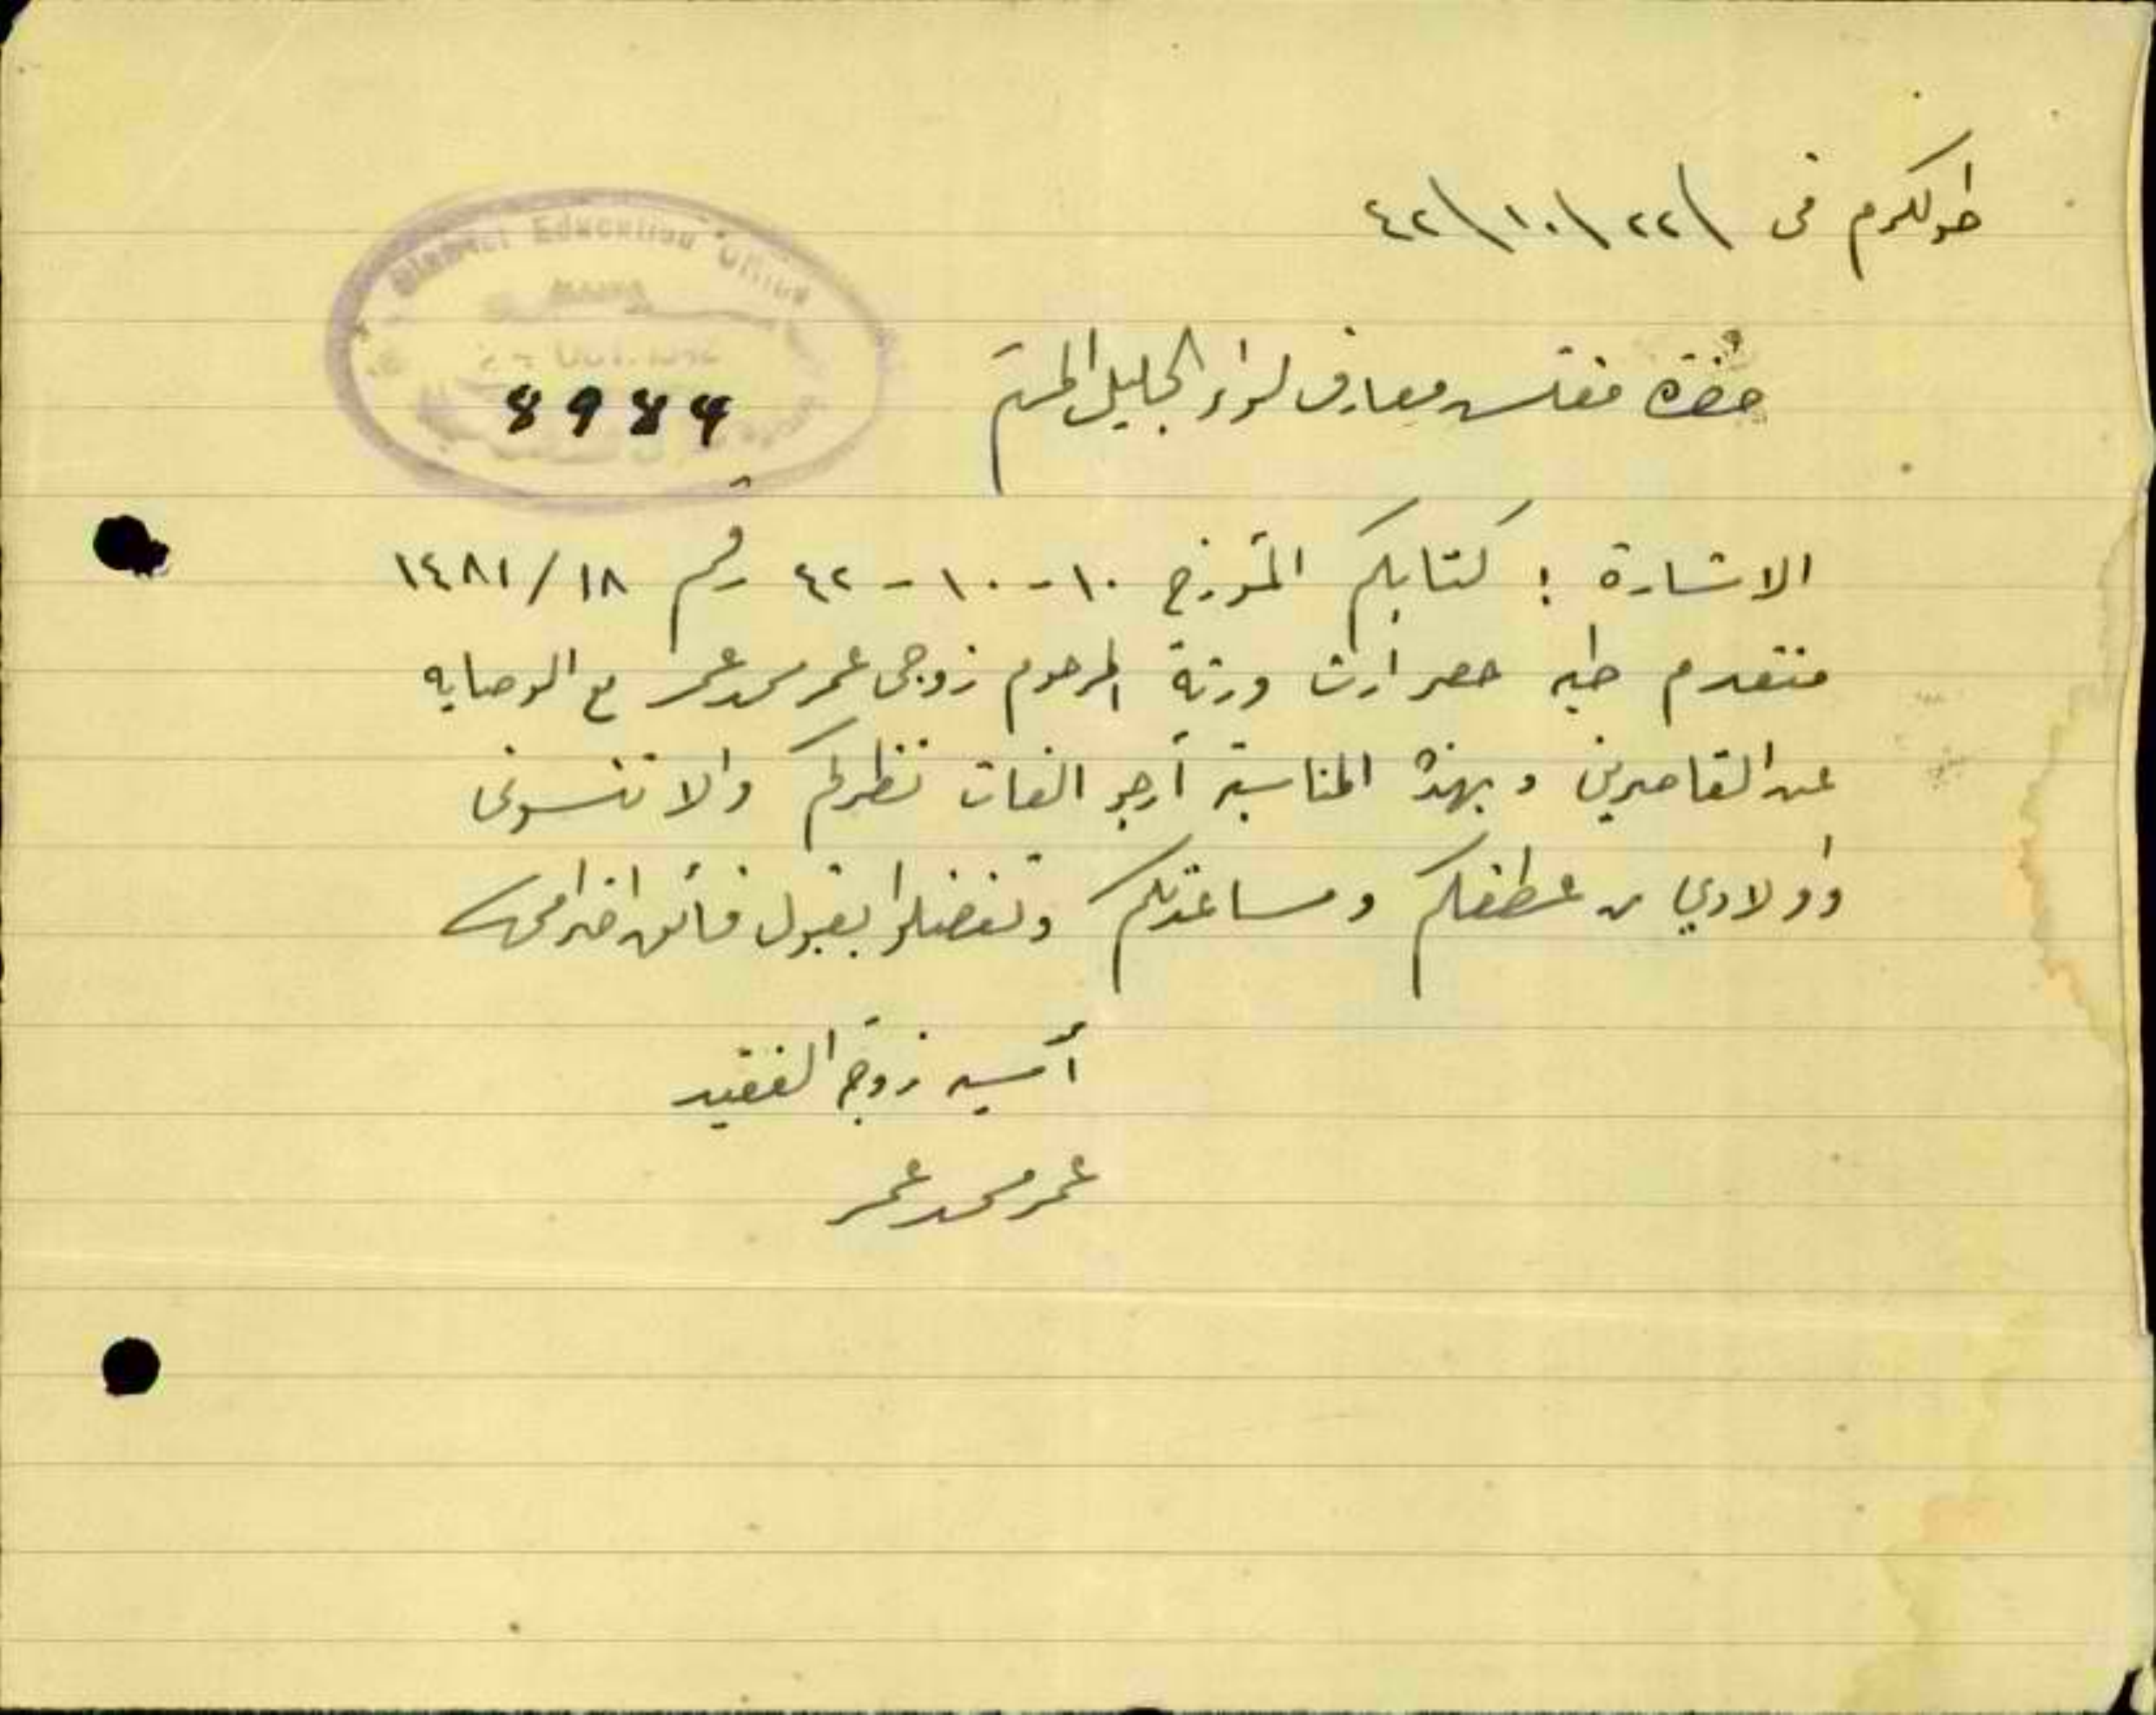 طولكرم في ٢٢/١٠/٤٢
District Education Office
حضرة مفتش معارف لواء الجليل المحترم
8984
الاشارة : كتابكم المؤرخ ١٠-١٠-٤٢ رقم ١٨/١٤٨١
متقدم طيه حصر ارث ورثة المرحوم زوجي عمر محمد عمر مع الوصايه
عن القاصرين وبهذه المناسبة أرجو الفات نظركم والا تنسوني
واولادي من عطفكم ومساعدتكم وتفضلوا بقبول فائق احترامي
آسيه زوجة الفقيد
عمر محمد عمر